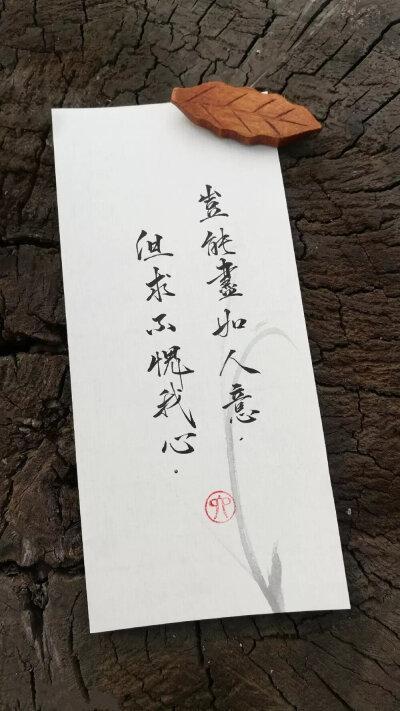 豈能盡如人意.
但求不愧我心.